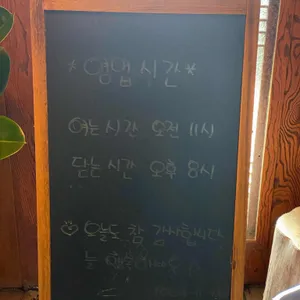 *영업시간*
여는 시간 오전 11시
닫는 시간 오후 8시
오늘도 참 감사한
늘